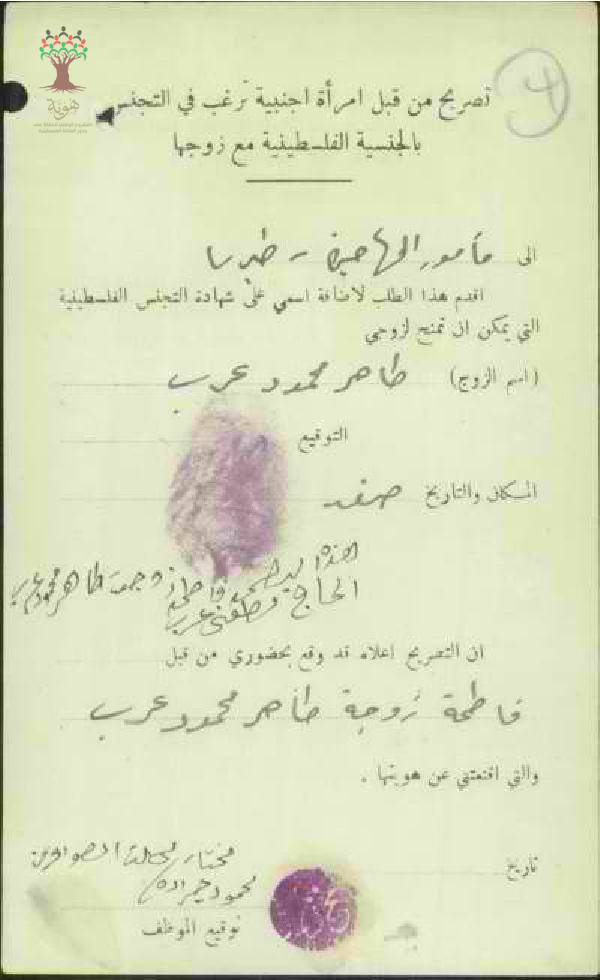 هوية
تصريح من قبل امرأة اجنبية ترغب في التجنس
بالجنسية الفلسطينية مع زوجها
الى مأمور المهاجرة - طبريا
اقدم هذا الطلب لاضافة اسمي على شهادة التجنس الفلسطينية
التي يمكن ان تمنح لزوجي
(اسم الزوج) طاهر محمود عرب
التوقيع
المكان والتاريخ صفد
طاهر محمود عرب
الحاج مصطفى عرب
ان التصريح اعلاه قد وقع بحضوري من قبل
فاطمة زوجة طاهر محمود عرب
والتي اقنعتني عن هويتها .
تاريخ
مختار محلة الصواوين
محمود
توقيع الموظف